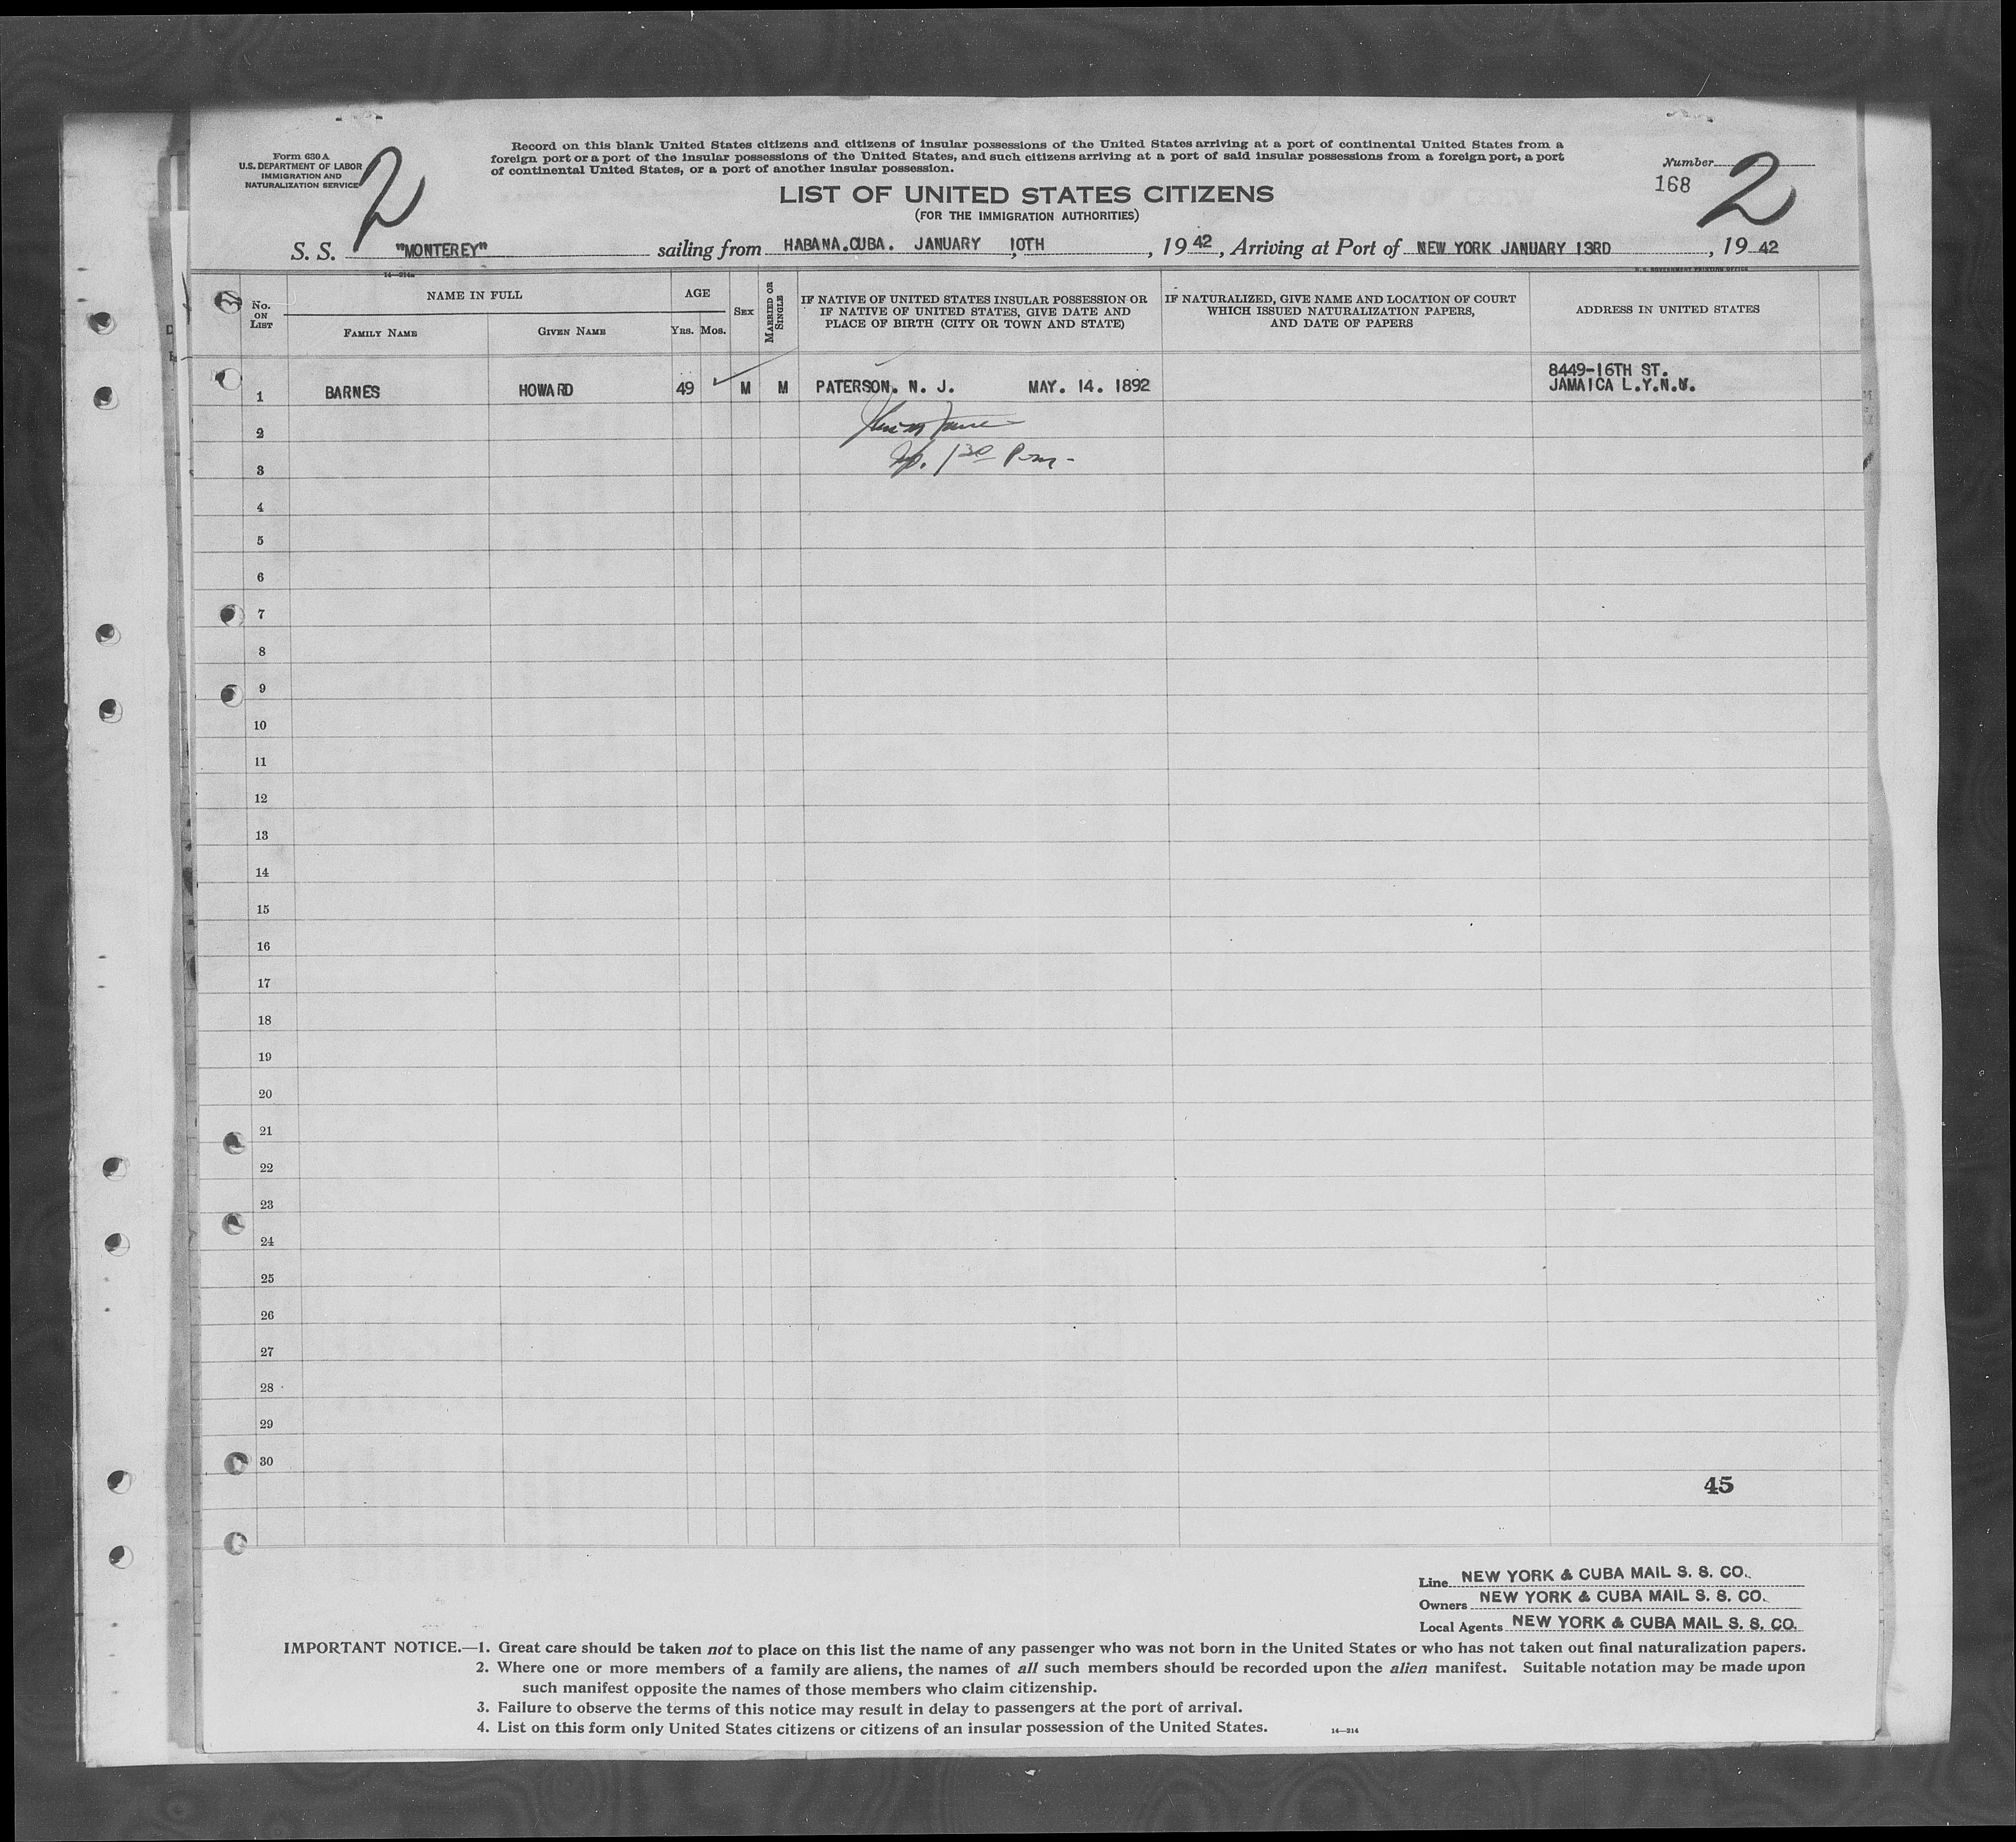 Form 630 A
U.S. DEPARTMENT OF LABOR
IMMIGRATION AND
NATURALIZATION SERVICE
2
Record on this blank United States citizens and citizens of insular possessions of the United States arriving at a port of continental United States from a
foreign port or a port of the insular possessions of the United States, and such citizens arriving at a port of said insular possessions from a foreign port, a port
of continental United States, or a port of another insular possession.
Number
168
2
LIST OF UNITED STATES CITIZENS
(FOR THE IMMIGRATION AUTHORITIES)
S. S. "MONTEREY" sailing from HABANA.CUBA. JANUARY 10TH, 1942, Arriving at Port of NEW YORK JANUARY 13RD, 1942
14—214a
U. S. GOVERNMENT PRINTING OFFICE
No. ON LIST
NAME IN FULL
FAMILY NAME
GIVEN NAME
AGE
YRS. MOS.
SEX
MARRIED OR SINGLE
IF NATIVE OF UNITED STATES INSULAR POSSESSION OR
IF NATIVE OF UNITED STATES, GIVE DATE AND
PLACE OF BIRTH (CITY OR TOWN AND STATE)
IF NATURALIZED, GIVE NAME AND LOCATION OF COURT
WHICH ISSUED NATURALIZATION PAPERS,
AND DATE OF PAPERS
ADDRESS IN UNITED STATES
8449-16TH ST.
1 BARNES HOWARD 49 M M PATERSON. N. J. MAY. 14. 1892 JAMAICA L.Y.N.Y.
2
3 1 30 Pm-
4
5
6
7
8
9
10
11
12
13
14
15
16
17
18
19
20
21
22
23
24
25
26
27
28
29
30
45
Line NEW YORK & CUBA MAIL S. S. CO.
Owners NEW YORK & CUBA MAIL S. S. CO.
Local Agents NEW YORK & CUBA MAIL S. S. CO.
IMPORTANT NOTICE.—1. Great care should be taken not to place on this list the name of any passenger who was not born in the United States or who has not taken out final naturalization papers.
2. Where one or more members of a family are aliens, the names of all such members should be recorded upon the alien manifest. Suitable notation may be made upon
such manifest opposite the names of those members who claim citizenship.
3. Failure to observe the terms of this notice may result in delay to passengers at the port of arrival.
4. List on this form only United States citizens or citizens of an insular possession of the United States.
14—214